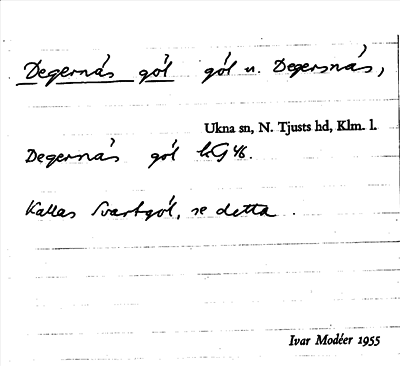 Degernäs göl göl n. Degersnäs,
Ukna sn, N. Tjusts hd, Klm. l.
Degernäs göl
Kallas Svartgöl, se detta.
Ivar Modéer 1955